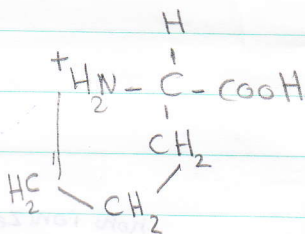 H
+H2N - C - COOH
CH2
H2C
CH2